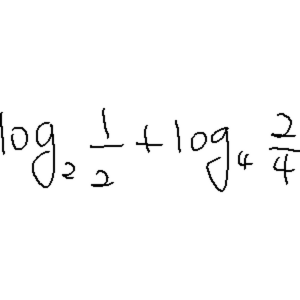 log₂ 1/2 + log₄ 2/4